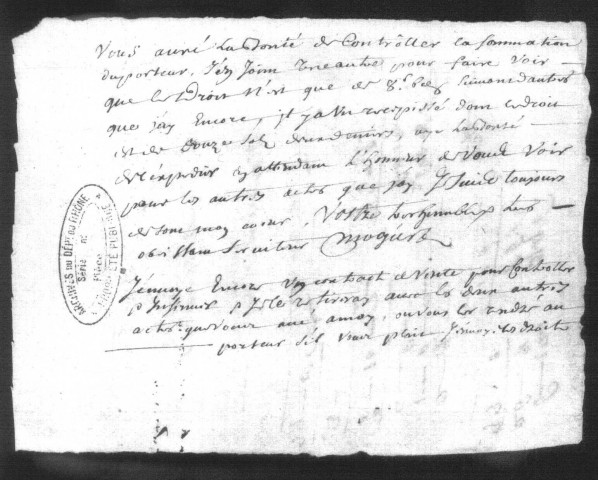 Vous auré La Bonté de Controller la sommation
du porteur, J'en Joint une autre pour faire voir
que le Droit n'est que de 8 s. suivant d'autres
que j'ay Encore, et y a Vu dont le droit
est de Douze sols deux deniers, aye La Bonté
de L'expedier En attendant L'honneur de Vous Voir
pour les autres actes que j'ay Je suis toujours
de tout mon coeur, Vostre tres humble & tres
obeissant Serviteur
J'envoye Encore Un contract de Vente pour Controller
& Insinuer & Je le retireray avec les deux autres
actes que vous avé a moy, ou vous les rendré au
porteur s'il vous plait J'envoy les droits
ARCHIVES DU DÉPT DU RHÔNE
Série
Pièce
PROPRIÉTÉ PUBLIQUE